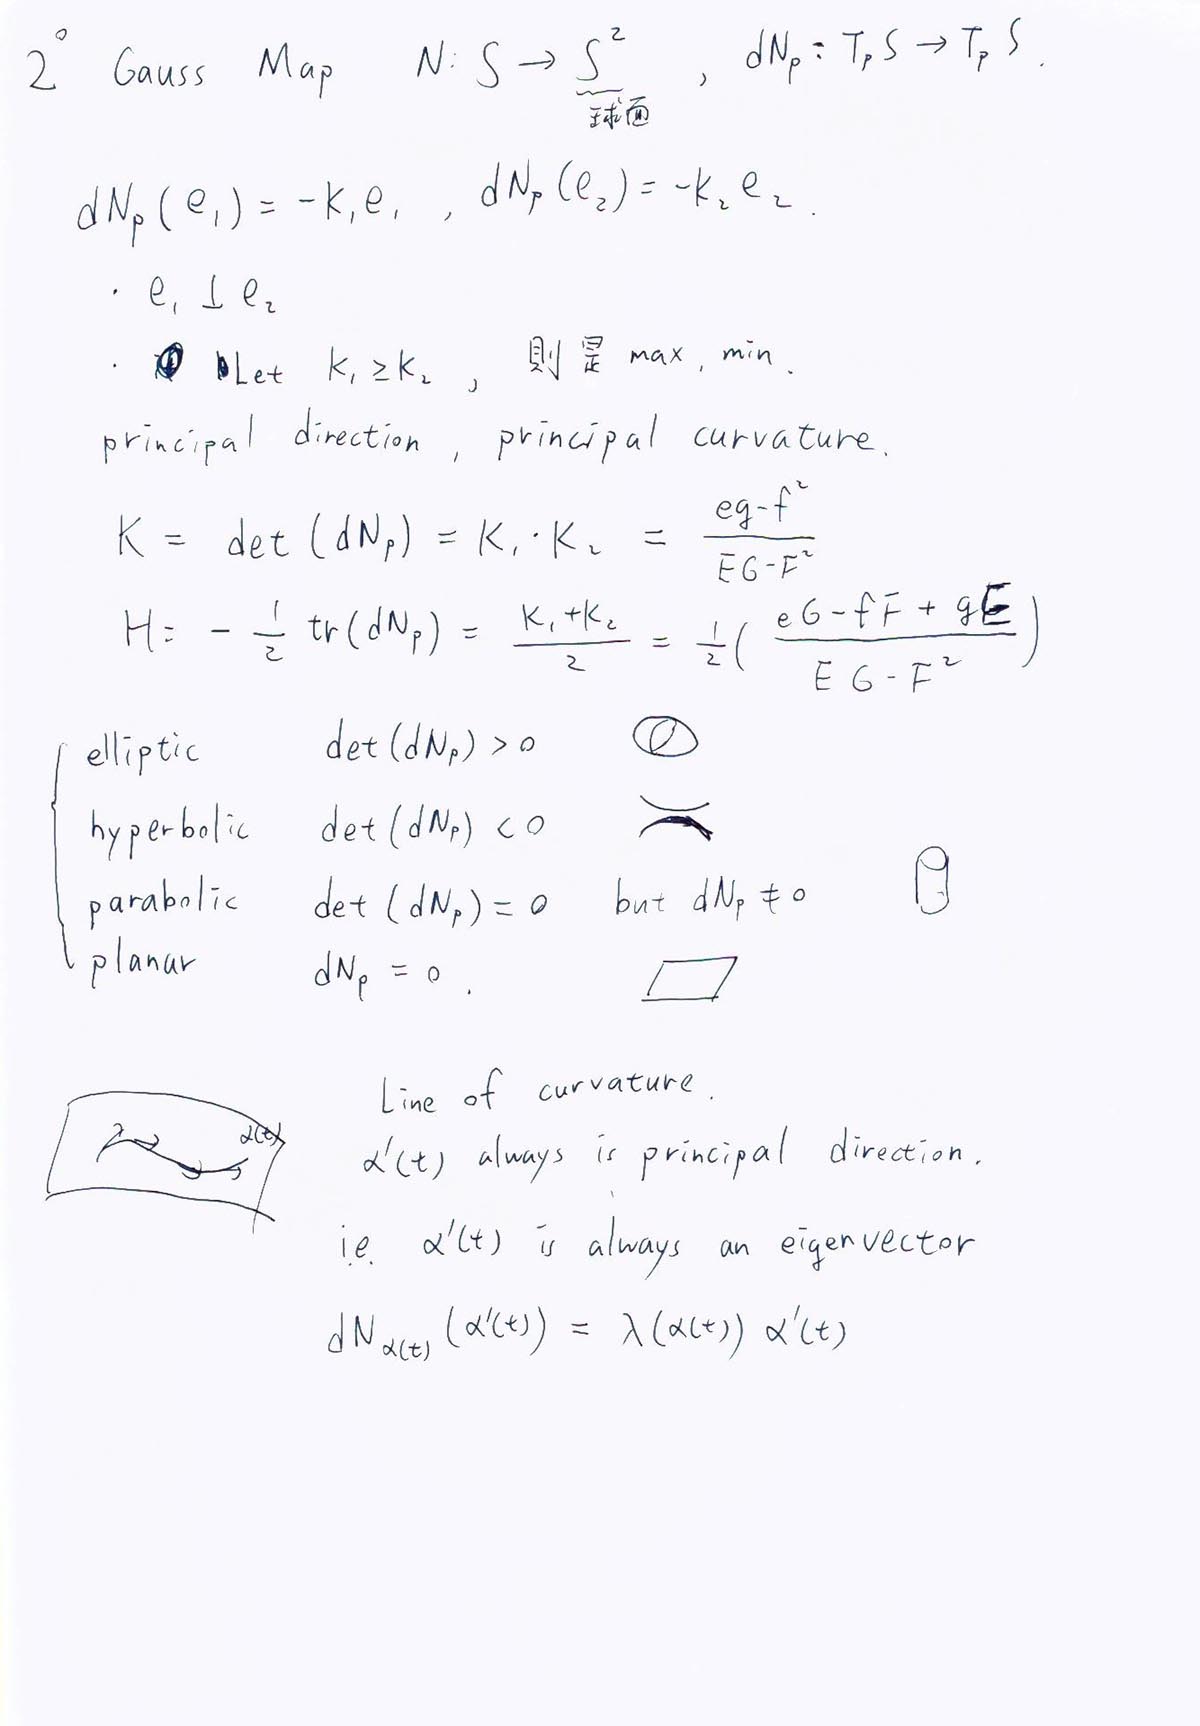 2° Gauss Map N: S → S² , dNₚ: TₚS → TₚS.
球面
dNₚ(e₁) = -k₁e₁ , dNₚ(e₂) = -k₂e₂.
· e₁ ⊥ e₂
· Let k₁ ≥ k₂ , 則是 max, min.
principal direction , principal curvature.
K = det(dNₚ) = K₁·K₂ = (eg-f²)/(EG-F²)
H = -1/2 tr(dNₚ) = (K₁+K₂)/2 = 1/2 ((eG-fF+gE)/(EG-F²))
elliptic det(dNₚ) > 0
hyperbolic det(dNₚ) < 0
parabolic det(dNₚ) = 0 but dNₚ ≠ 0
planar dNₚ = 0.
Line of curvature.
α(t)
α'(t) always is principal direction.
i.e. α'(t) is always an eigenvector
dN_α(t) (α'(t)) = λ(α(t)) α'(t)